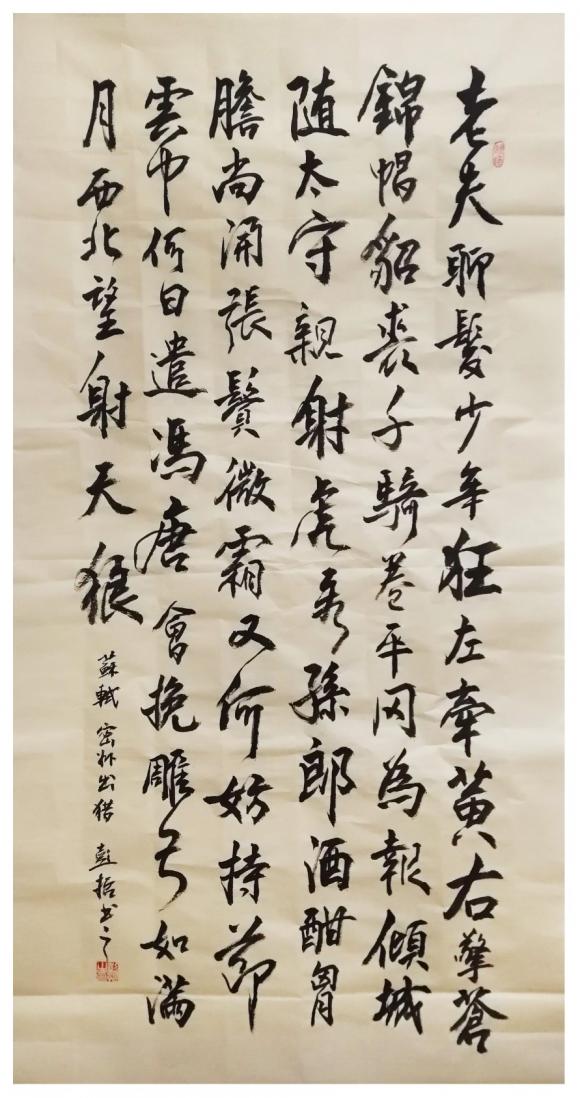 老夫聊發少年狂左牽黃右擎蒼
錦帽貂裘千騎卷平冈為報傾城
随太守親射虎看孫郎酒酣胷
膽尚開張鬢微霜又何妨持節
雲中何日遣馮唐會挽雕弓如满
月西北望射天狼
蘇軾 密州出猎 彭哲书之